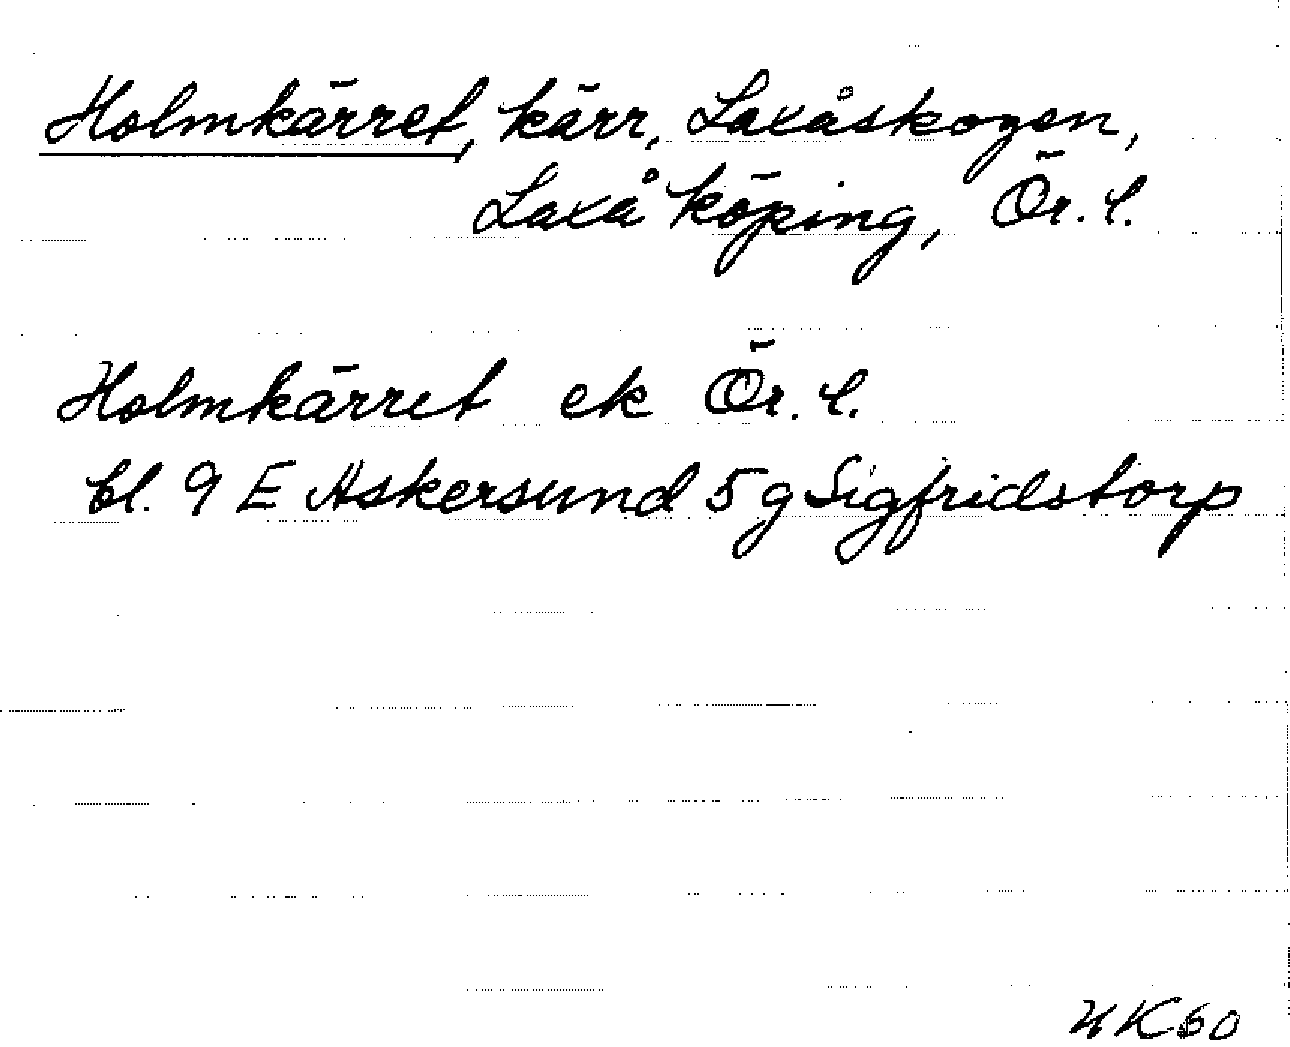 Holmkärret, kärr, Laxåskogen,
Laxå köping, Ör. l.
Holmkärret ek Ör. l.
bl. 9 E Askersund 5 g Sigfridstorp
HK60